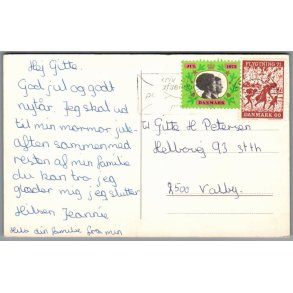 Hej Gitte.
God jul og godt
nytår. Jeg skal ud
til min mormor jule-
aften sammen med
resten af min familie
du kan tro jeg
glæder mig jeg slutter
Hilsen Jeannie
Hils din familie fra min
JUL 1973
DANMARK
FLYGTNING 71
DANMARK 60
Til Gitte H Petersen
93 st th
2500 Valby.